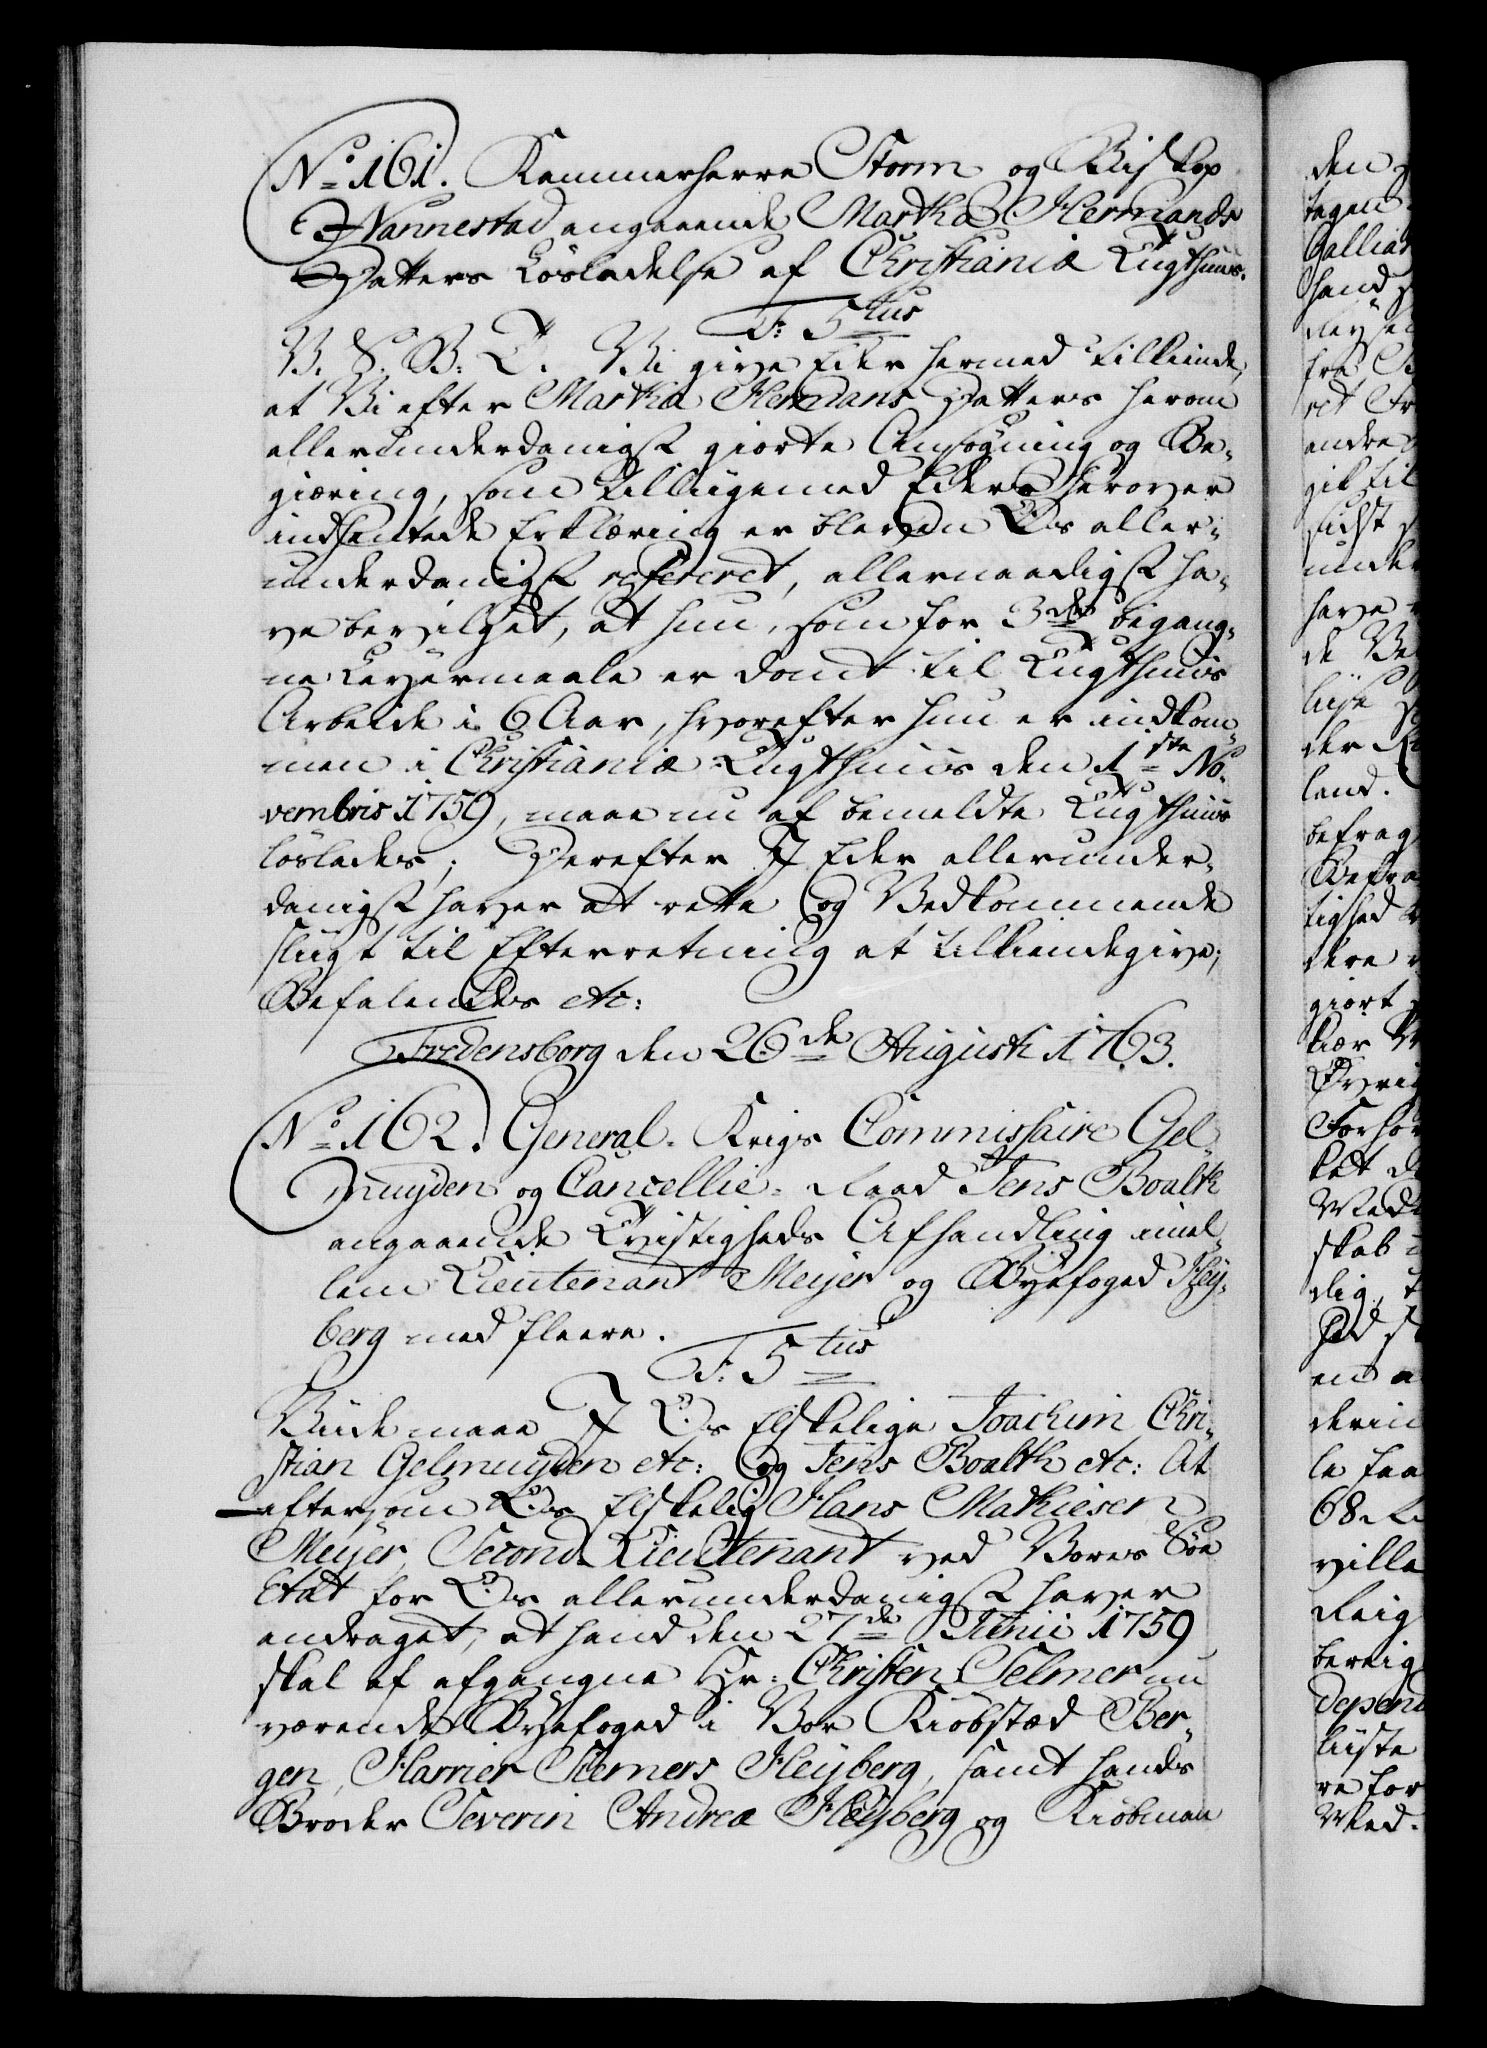 No 161. Kammerherre Storm og Biskop
Nannestad angaaende Martha Hermands
Datters Løsladelse af Christianiæ Tugthuus.
F: 5tus
V. S. B: T. Vi give Eder hermed tilkiende,
at Vi efter Martha Hermans Datters herom
allerunderdanigst giorte Ansøgning og Be-
giæring, som tilligemed Eders herover
indhentede Erklæring er bleven Os aller-
underdanigst refereret, allernaadigst ha-
ve bevilget, at hun, som for 3de begang-
ne Leyermaale er dømt til Tugthuus
Arbeide i 6 Aar, hvorefter hun er indkom-
men i Christianiæ Tugthuus den 1ste No-
vembris 1759, maae nu af bemeldte Tugthuus
løslades; Derefter I Eder allerunder-
danigst haver at rette og Vedkommende
sligt til Efterretning at tilkiendegive;
Befalendes etc:
Fredensborg den 26de Augusti 1763.
No 162. General-Krigs Commissaire Gel-
muyden og Cancellie-Raad Jens Boalth
angaaende Tvistigheds Afhandling imel-
lem Lieutenant Meyer og Byefoged Hey-
berg med fleere.
F: 5tus
Viide maae I Os Elskelige Joachim Chri-
stian Gelmuyden etc: og Jens Boalth etc: At
eftersom Os Elskelig Hans Mathiesen
Meyer, Second Lieutenant ved Vores Søe
Etat for Os allerunderdanigst haver
andraget, at hand den 27de Junii 1759
skal af afgangne Hr: Christen Selmer nu
værende Byefoged i Vor Kiøbstæd Ber-
gen, Harrier Siemers Heyberg, samt hands
Broder Severin Andreæ Heyberg og Kiøbman
den
tagen
hand
fra
andre
gik til
sidst
under
have
de Ve
lise
der
land.
befrag
Befra
tighed
dere
giort
kier
Forhør
ket
skab
dig, t
en a
derin
le faa
68
ville
bevig
depend
liiste
re for
Med-